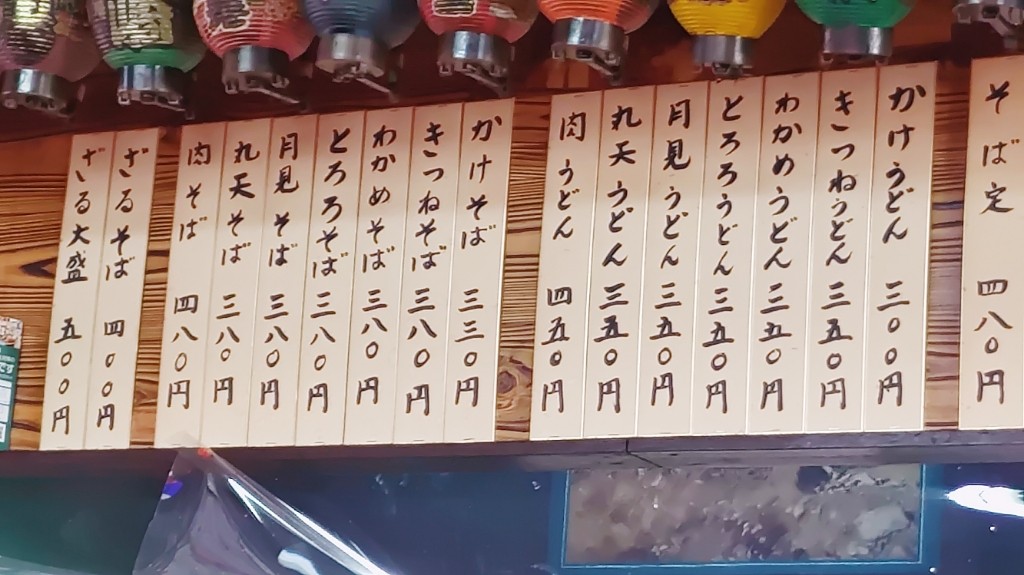 そば定 四八〇円
かけうどん 三〇〇円
きつねうどん 三五〇円
わかめうどん 三五〇円
とろろうどん 三五〇円
月見うどん 三五〇円
丸天うどん 三五〇円
肉うどん 四五〇円
かけそば 三三〇円
きつねそば 三八〇円
わかめそば 三八〇円
とろろそば 三八〇円
月見そば 三八〇円
丸天そば 三八〇円
肉そば 四八〇円
ざるそば 四〇〇円
ざる大盛 五〇〇円